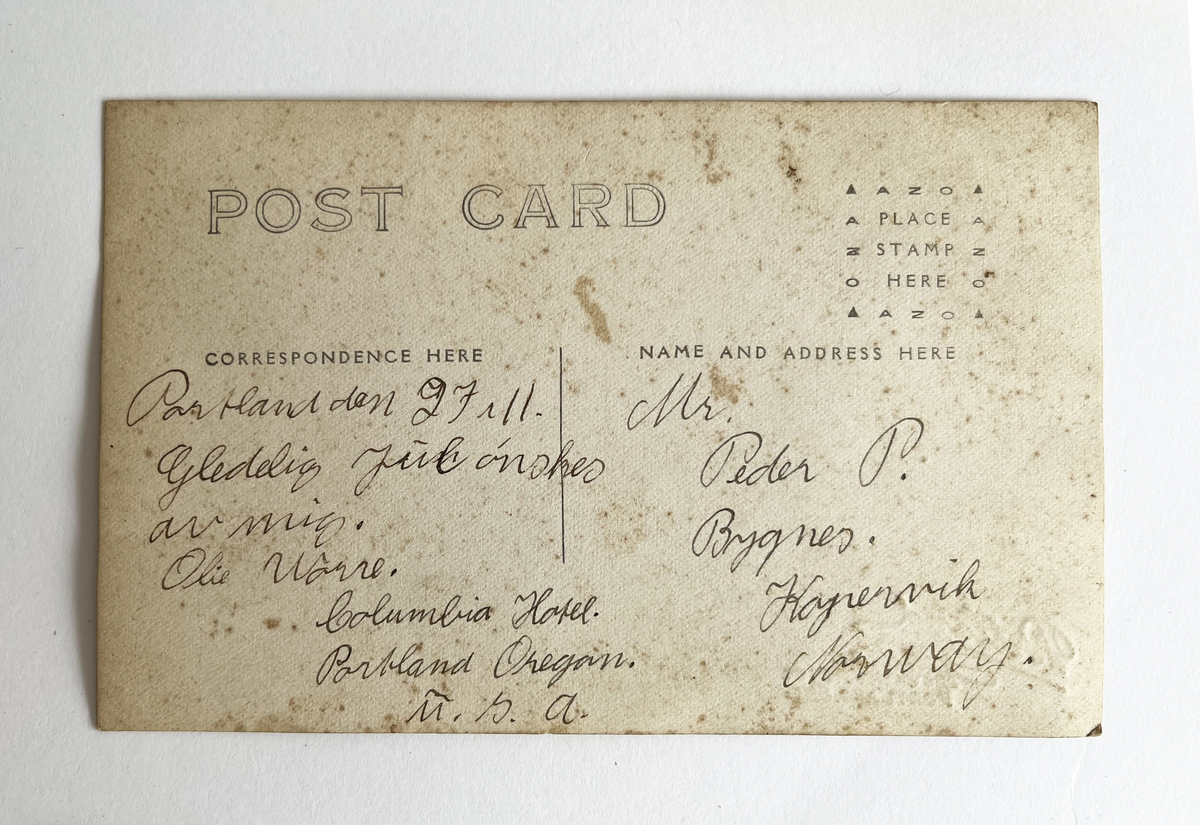 POST CARD
▲ AZO ▲
A PLACE A
Z STAMP Z
O HERE O
▲ AZO ▲
CORRESPONDENCE HERE
Portland den 27/11.
Gledelig Jul ønskes
av mig.
Olie Wårre.
Columbia Hotel.
Portland Oregon.
U. S. a.
NAME AND ADDRESS HERE
Mr.
Peder P.
Bygnes.
Kopervik
Norway.